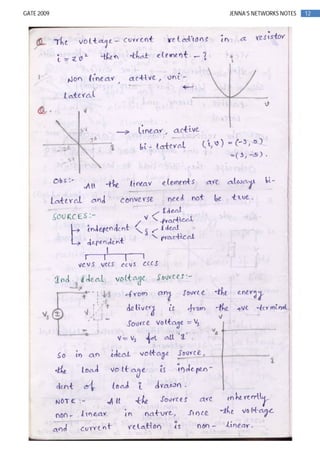 GATE 2009 JENNA'S NETWORKS NOTES 12
Q. The voltage - current relations in a resistor
i = 2v² then that element - ?
Non linear, active, uni -
lateral
v
Q.
→ linear, active
bi - lateral (i, v) = (-3, 3)
= (3, -3).
Obs:-
All the linear elements are always bi-
lateral and converse need not be true.
SOURCES:-
V Ideal
practical
independent
I Ideal
practical
dependent
VCVS VCCS CCVS CCCS
Ind. Ideal voltage Sources:-
from any source the energy
delivery is from the +ve terminal
Source voltage = Vs
V = Vs for all 'I'
So in an ideal voltage Source,
the load voltage is indepen-
dent of load I drawn.
NOTE:- All the Sources are inherently
non - linear in nature, since the voltage
and current relation is non - linear.